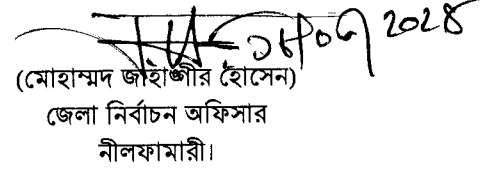 (মোহাম্মদ জাহাঙ্গীর হোসেন)
জেলা নির্বাচন অফিসার
নীলফামারী।